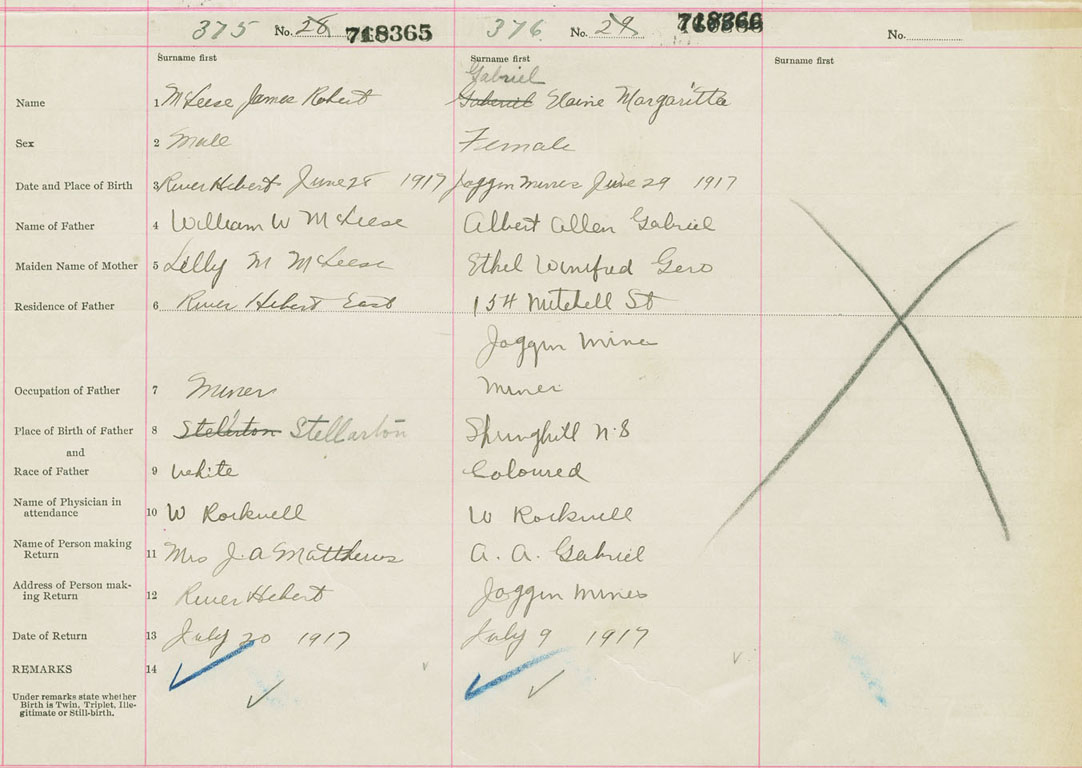 375 No. 28 718365 376 No. 29 718366 No.
Surname first Surname first Surname first
Gabriel
Name 1 McLeese James Robert Gabriel Elaine Margaritta
Sex 2 Male Female
Date and Place of Birth 3 River Hebert June 28 1917 Joggin Mines June 29 1917
Name of Father 4 William W McLeese Albert Allen Gabriel
Maiden Name of Mother 5 Lilly M McLeese Ethel Winifred Gero
Residence of Father 6 River Hebert East 154 Mitchell St
Joggin Mine
Occupation of Father 7 Miner Miner
Place of Birth of Father 8 Stellerton Stellarton Springhill N.S
and
Race of Father 9 White Coloured
Name of Physician in
attendance 10 W Rockwell W Rockwell
Name of Person making
Return 11 Mrs J. A Matthews A. A. Gabriel
Address of Person mak-
ing Return 12 River Hebert Joggin Mines
Date of Return 13 July 20 1917 July 9 1917
REMARKS 14
Under remarks state whether
Birth is Twin, Triplet, Ille-
gitimate or Still-birth.